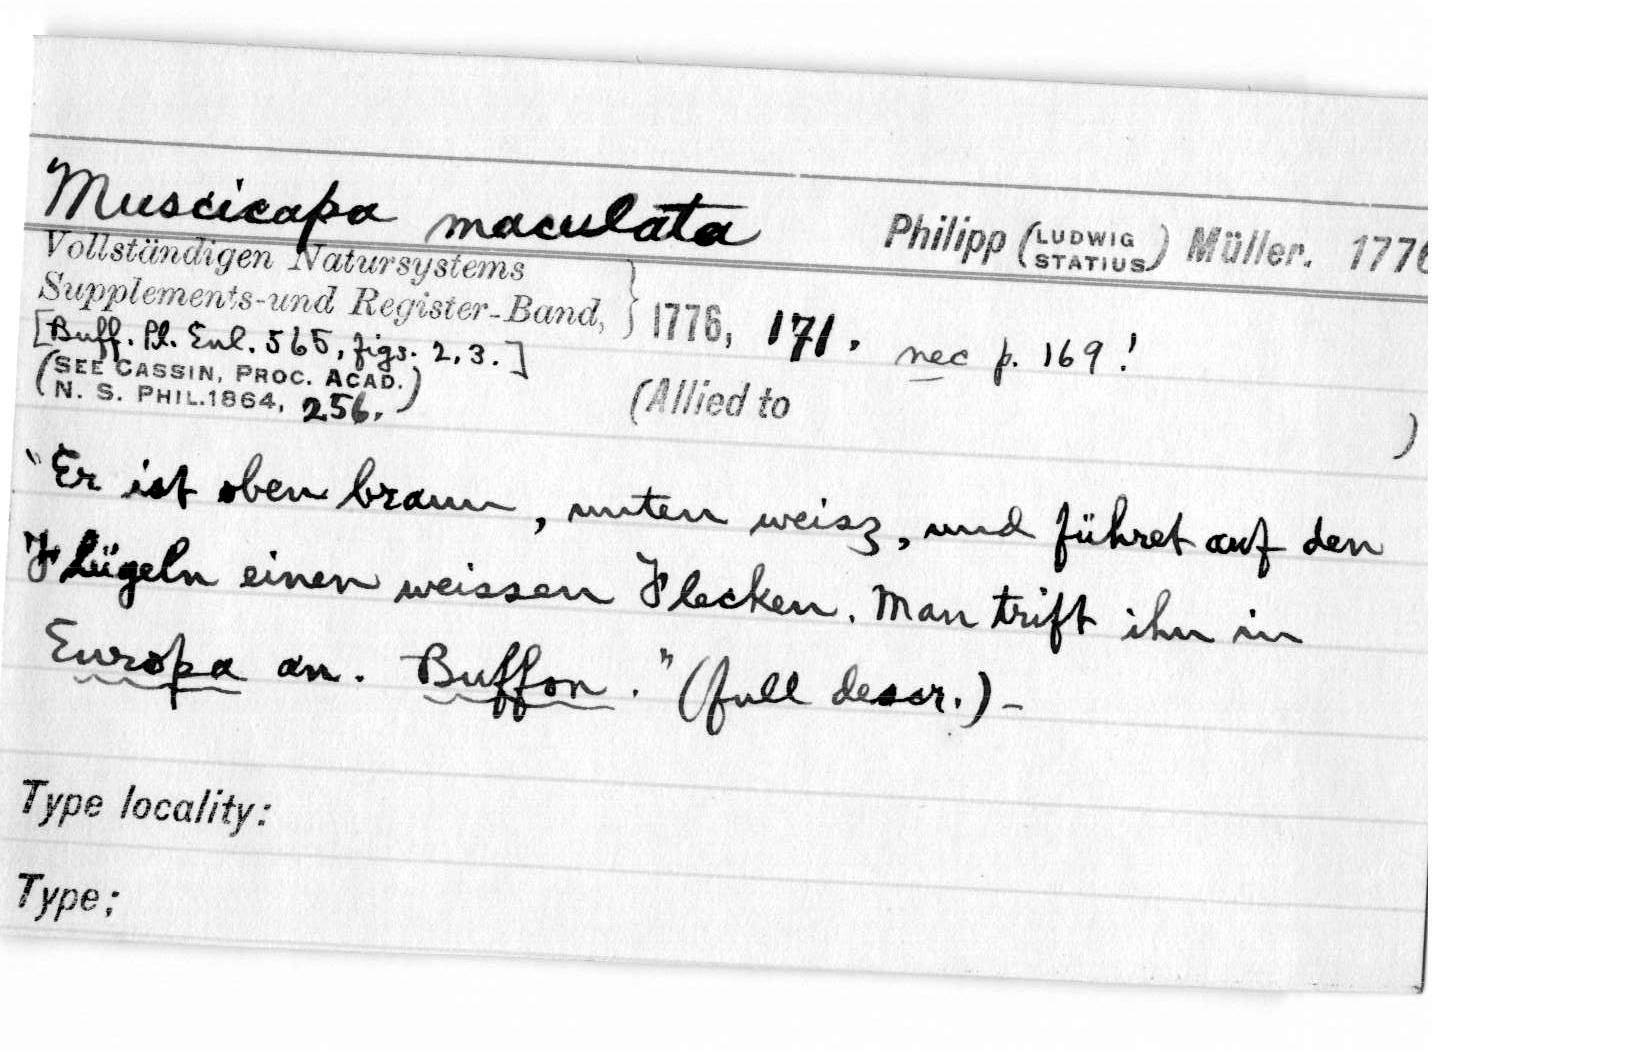 Muscicapa maculata Philipp (LUDWIG STATIUS) Müller. 1776
Vollständigen Natursystems
Supplements-und Register-Band, } 1776, 171. nec p. 169!
[Buff. Pl. Enl. 565, figs. 2, 3.]
(SEE CASSIN, PROC. ACAD.
N. S. PHIL. 1864, 256.) (Allied to )
"Er ist oben braun, unten weisz, und führet auf den
Flügeln einen weissen Flecken. Man trift ihn in
Europa an. Buffon." (full descr.) –
Type locality:
Type: